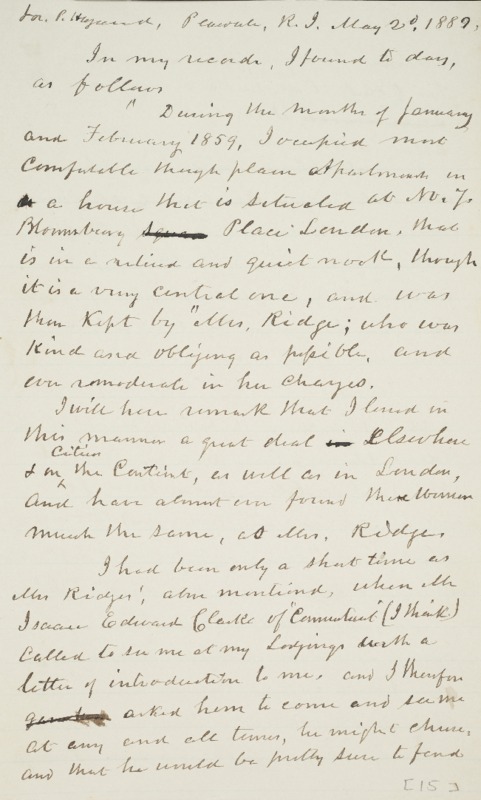 for. P. Hazard, Peacedale, R. I. May 2d, 1887,
In my records, I found to day,
as follows
" During the months of January
and February 1859, I occupied most
Comfortable though plain Apartments in
a house that is situated at No. 7.
Bloomsbury Place London, that
is in a retired and quiet nook, though
it is a very central one, and was
then Kept by "Mrs, Ridge; who was
Kind and obliging as possible, and
ever so moderate in her charges.
I will here remark that I lived in
this manner a great deal Elsewhere
Cities
& on the Contint, as well as in London,
And have almost ever found these Women
much the same, as Mrs. Ridge.
I had been only a short time as
Mrs Ridges', above mentiond, when Mr
Isaac Edward Clarke of "Connecticut" (I think)
Called to see me at my Lodgings with a
letter of introduction to me, and I therefore
asked him to come and see me
at any and all times, he might chuse,
and that he would be pretty sure to find
[15]